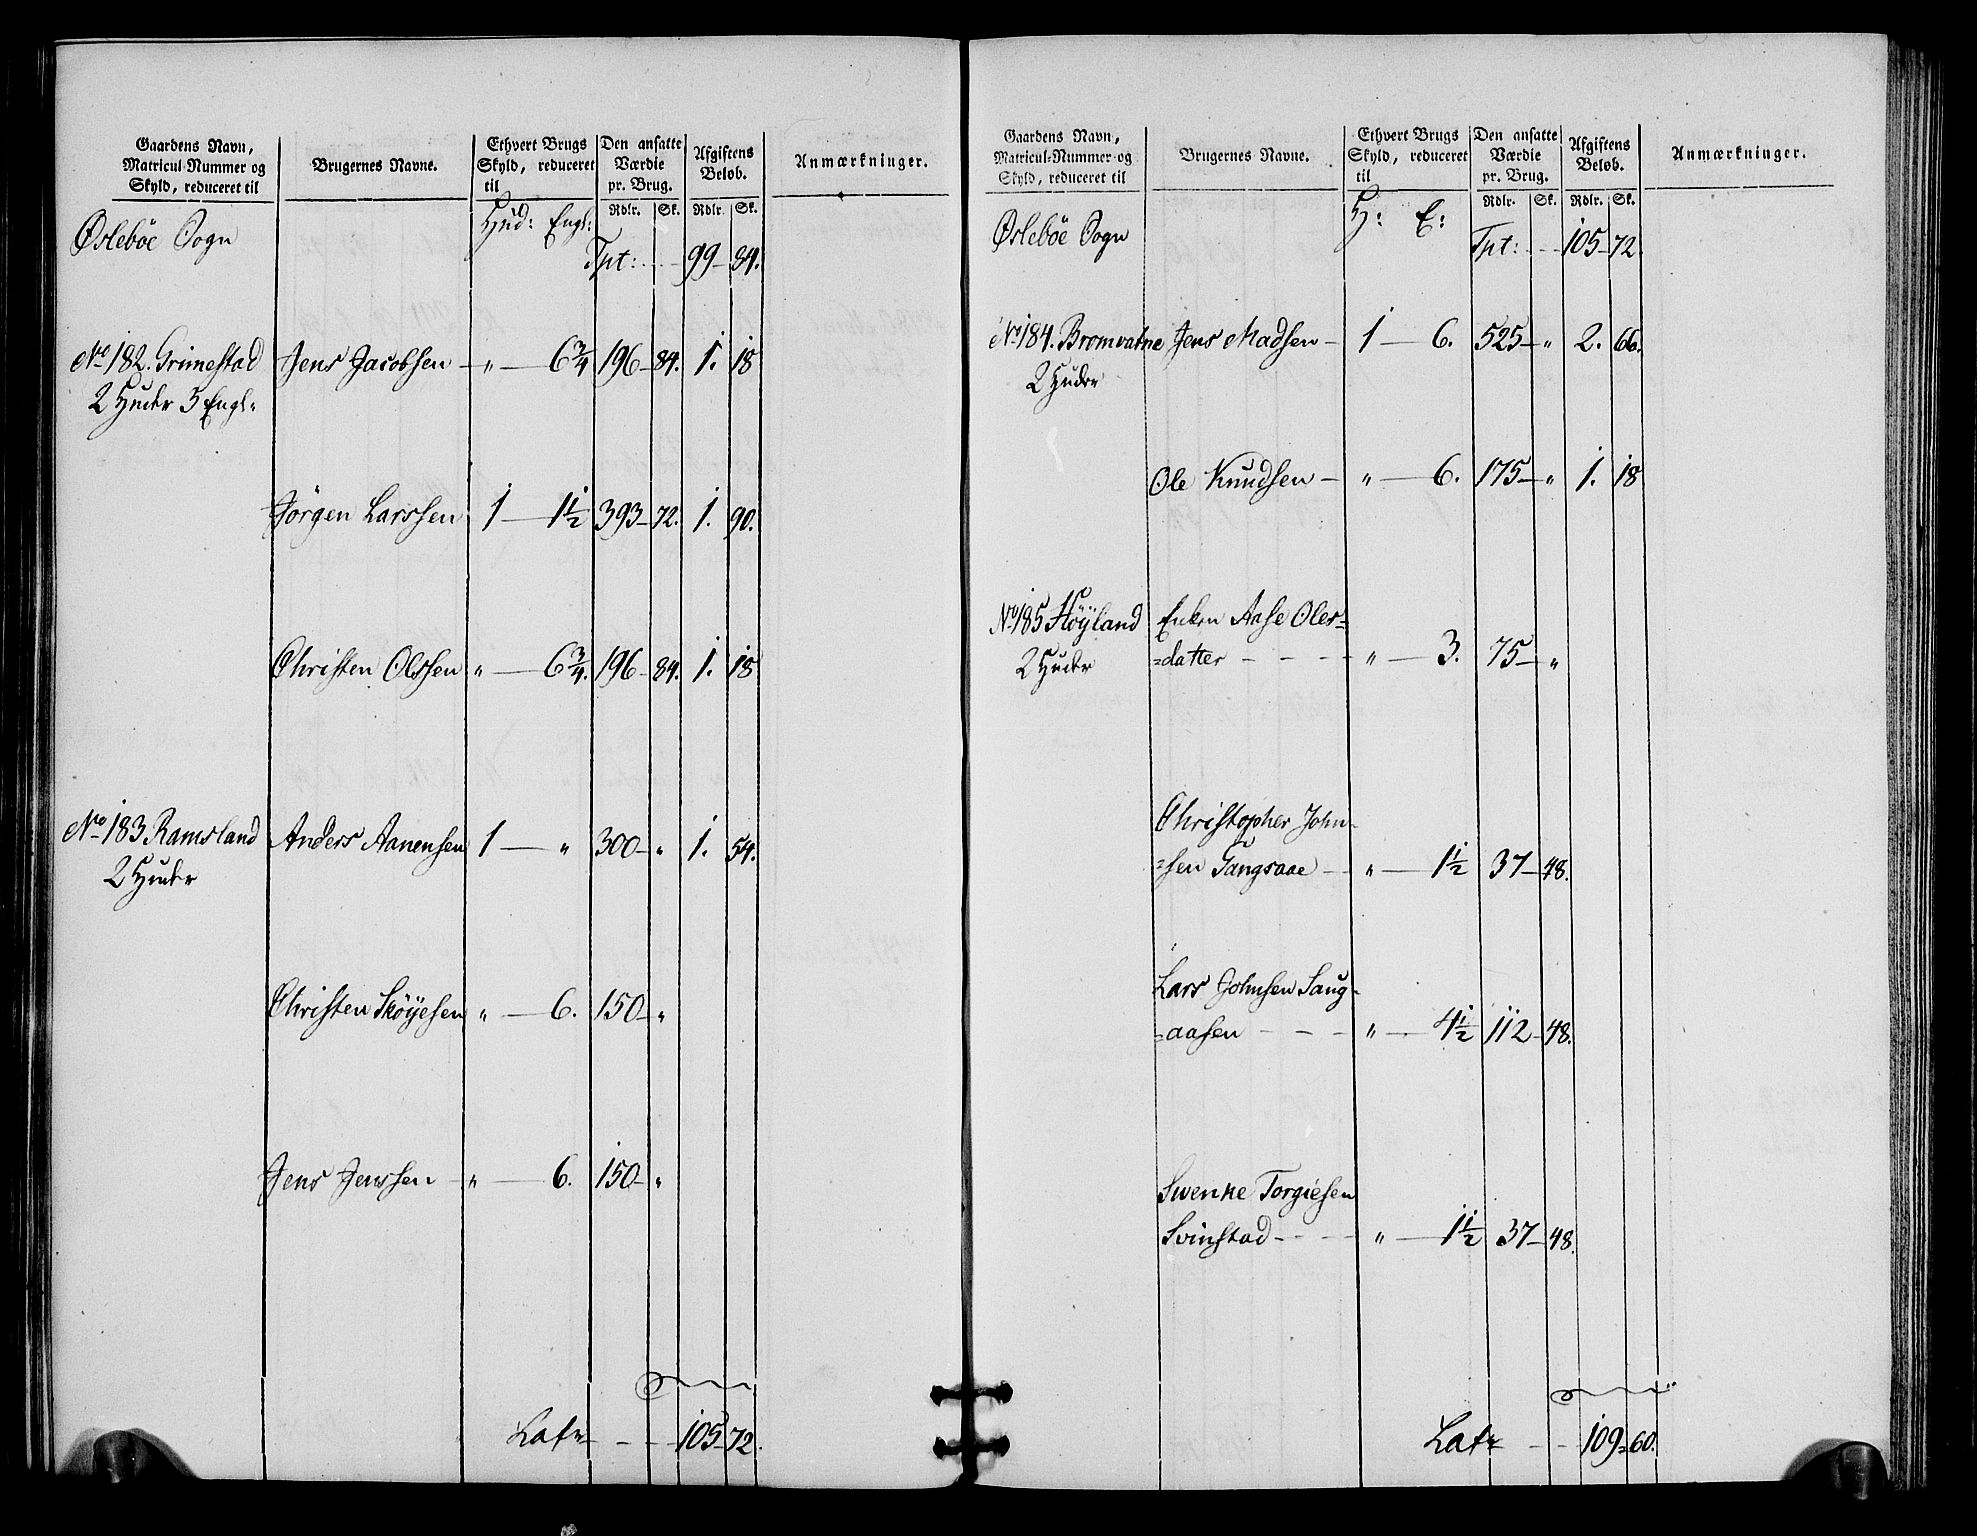 Gaardens Navn,
Matricul-Nummer og
Skyld, reduceret til
Brugernes Navne.
Ethvert Brugs
Skyld, reduceret
til
Den ansatte
Værdie
pr. Brug.
Afgiftens
Beløb.
Anmærkninger.
Rdlr. Sk. Rdlr. Sk.
Øslebøe Sogn Hud: Engl:
Tpt: 99 84.
No 182. Grimestad Jens Jacobsen „ 6¾ 196 84. 1. 18
2 Huder 3 Engl:
Jørgen Larssen 1 1½ 393 72. 1. 90.
Christen Olssen „ 6¾. 196 84. 1. 18
No 183 Ramsland Anders Aanensen 1 „ 300 „ 1. 54.
2 Huder
Christen Skøyesen „ 6. 150 „
Jens Jenssen „ 6. 150 „
Lat: 105 72.
Gaardens Navn,
Matricul-Nummer og
Skyld, reduceret til
Brugernes Navne.
Ethvert Brugs
Skyld, reduceret
til
Den ansatte
Værdie
pr. Brug.
Afgiftens
Beløb.
Anmærkninger.
Rdlr. Sk. Rdlr. Sk.
Øslebøe Sogn H: E:
Tpt: 105 72.
No 184. Bromvatne Jens Madsen 1 6. 525 „ 2. 66.
2 Huder
Ole Knudsen „ 6. 175 „ 1. 18
No 185 Høyland Enken Aase Oles=
2 Huder =datter „ 3. 75 „
Christopher John-
=sen „ 1½ 37 48.
Lars Johnsen Saug-
=aasen „ 4½ 112 48.
Swenke Torgiesen
Svinstad „ 1½ 37 48.
Lat: 109 60.